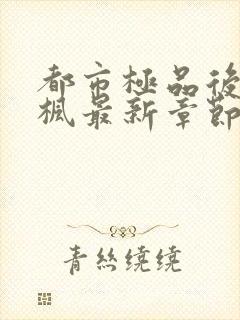 都市極品後
楓最新章節
青絲繞繞